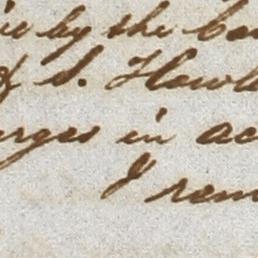 by the
of S. Howl
rges in ac
I rem